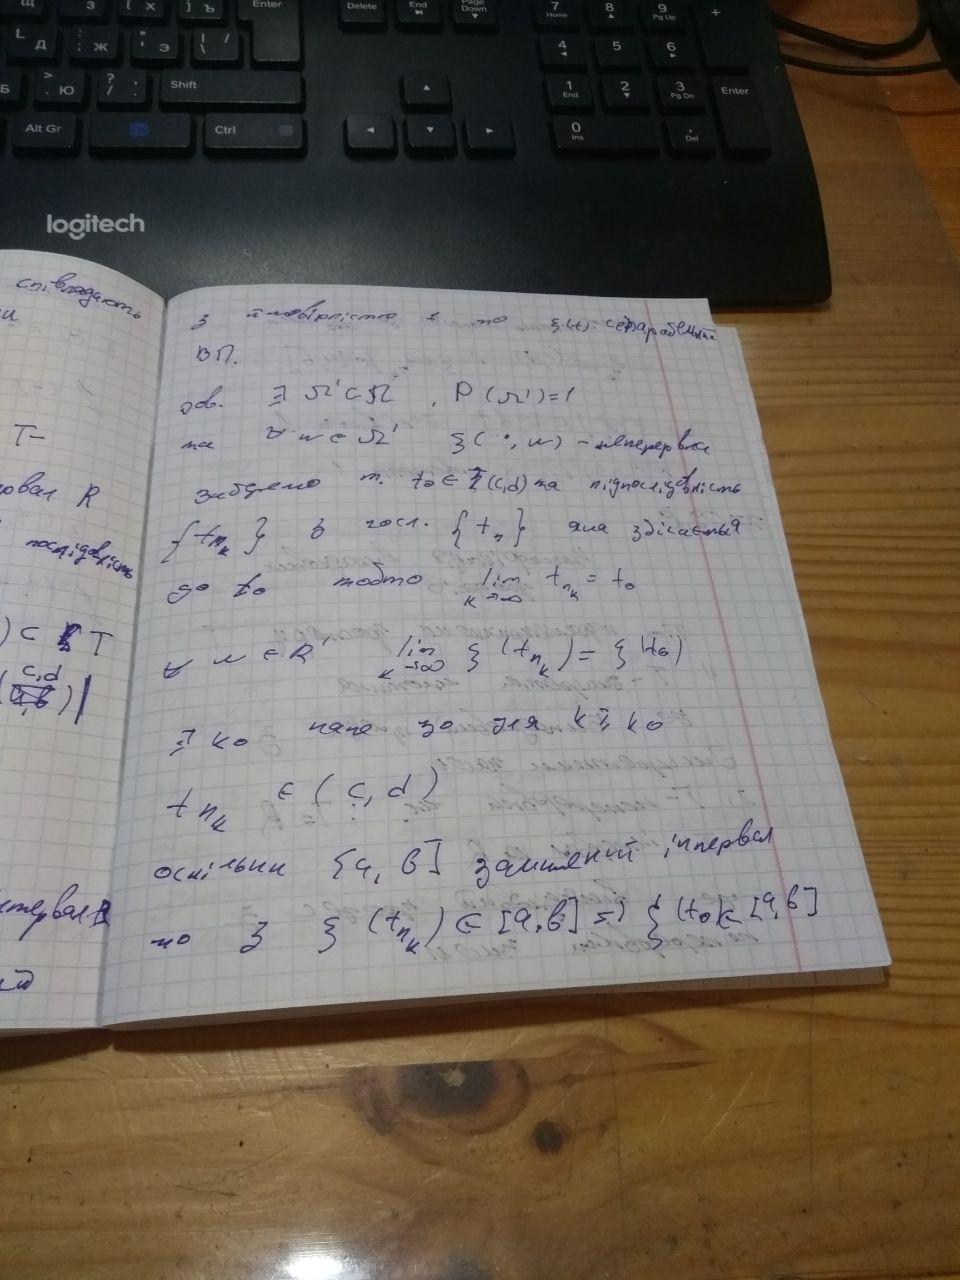 Enter
Delete
End
Page Down
7 Home
8
9 Pg Up
+
4
5
6
Shift
1 End
2
3 Pg Dn
Enter
Alt Gr
Ctrl
0 Ins
, Del
logitech
співпадають
Т-
R
послідовність
) ⊂ T
c,d
з ймовірністю 1 то ξ(t) сепарабельний
ВП.
дов. ∃ Ω' ⊂ Ω , P(Ω')=1
та ∀ w ∈ Ω' ξ(·, w) - неперервна
t₀ ∈ (c,d) та підпослідовність
{t_{n_k}} з посл. {t_n} яка збігається
до t₀ тобто lim_{k→∞} t_{n_k} = t₀
lim_{k→∞} ξ(t_{n_k}) = ξ(t₀)
∃ k₀ таке що для k ≥ k₀
t_{n_k} ∈ (c, d)
оскільки [a, b] замкнений інтервал
то з ξ(t_{n_k}) ∈ [a, b] => ξ(t₀) ∈ [a, b]